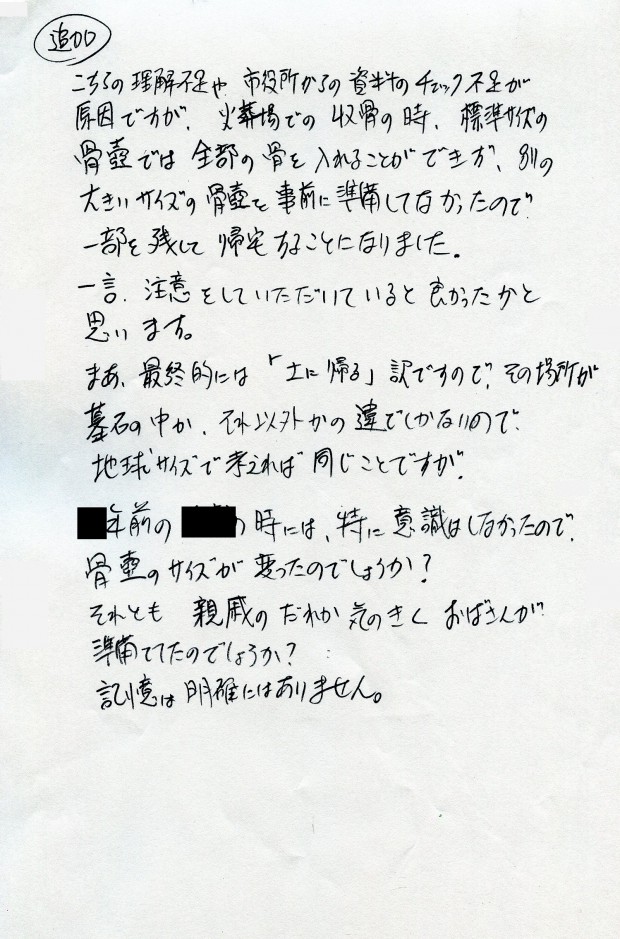 追加
こちらの理解不足や市役所からの資料のチェック不足が
原因ですが、火葬場での収骨の時、標準サイズの
骨壺では全部の骨を入れることができず、別の
大きいサイズの骨壺を事前に準備してなかったので
一部を残して帰宅することになりました。
一言、注意をしていただいていると良かったかと
思います。
まあ、最終的には「土に帰る」訳ですので、その場所が
墓石の中か、それ以外かの違でしかないので
地球サイズで考えれば同じことですが。
年前の の時には、特に意識はしなかったので、
骨壷のサイズが変ったのでしょうか?
それとも親戚のだれか気のきくおばさんが
準備してたのでしょうか?
記憶は明確にはありません。